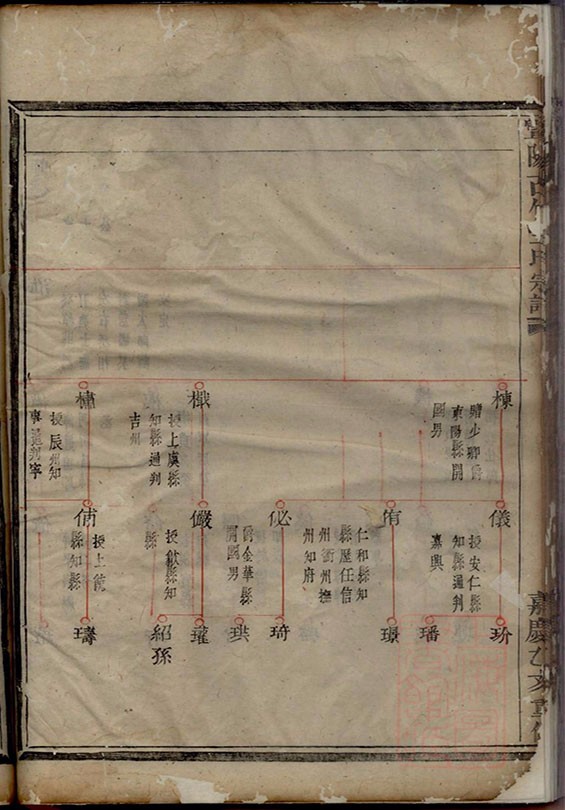 嘉慶乙亥重修
棟
贈少卿爵
東陽縣開
國男
櫼
授上虞縣
知縣通判
吉州
橚
授辰州知
事通判寧
儀
授安仁縣
知縣通判
嘉興
侑
仁和縣知
縣歷任信
州衢州撫
州知府
佖
爵金華縣
開國男
儼
授歙縣知
縣
俌
授上饒
縣知縣
玢
璠
璟
琦
珙
瓘
紹孫
璹